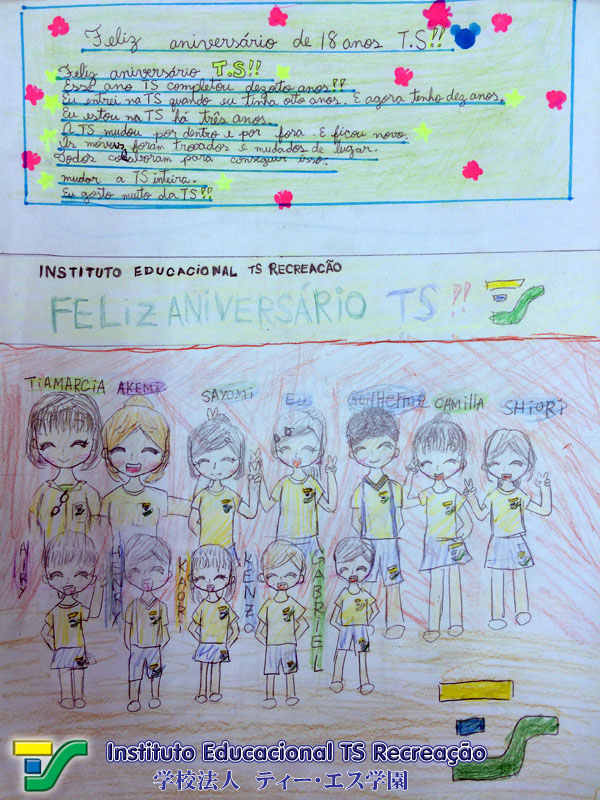 Feliz aniversário de 18 anos T.S!!
Feliz aniversário T.S!!
Esse ano TS completou dezoito anos!!
Eu entrei na TS quando eu tinha oito anos. E agora tenho dez anos.
Eu estou na TS há três anos.
A TS mudou por dentro e por fora. E ficou novo.
Os móveis foram trocados e mudados de lugar.
Todos colaboram para conseguir isso.
mudar a TS inteira.
Eu gosto muito da TS!!
INSTITUTO EDUCACIONAL TS RECREAÇÃO
FELIZ ANIVERSÁRIO TS!!
TIAMARCIA AKEMI SAYOMI EU Guilherme CAMILLA SHIORI
AIRY HENRY KAORI KENZO GABRIEL
Instituto Educacional TS Recreação
学校法人 ティー・エス学園